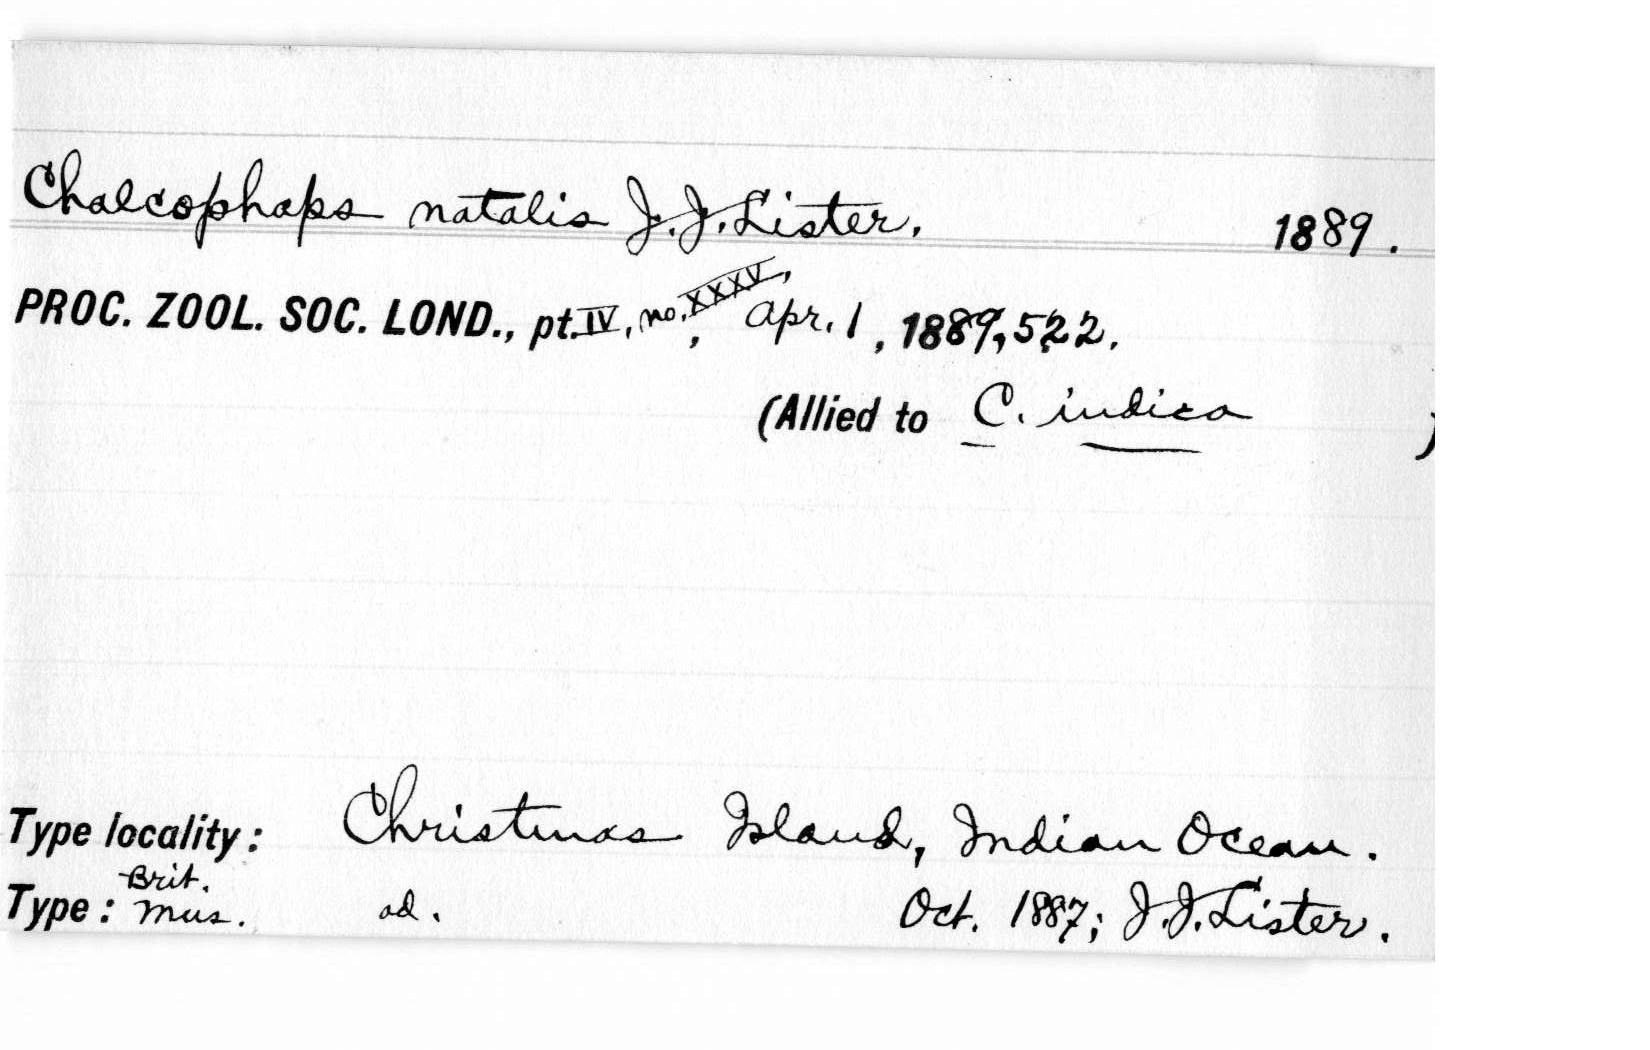 Chalcophaps natalis J.J. Lister. 1889.
PROC. ZOOL. SOC. LOND., pt. IV, no. XXXV, Apr. 1, 1889, 522.
(Allied to C. indica )
Type locality: Christmas Island, Indian Ocean.
Type: Brit. Mus. ad. Oct. 1887; J.J. Lister.